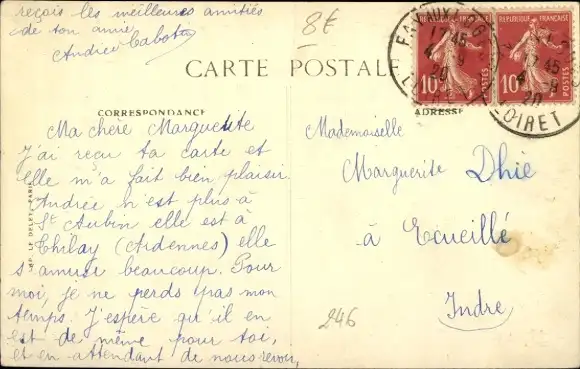 reçois les meilleures amitiés
de ton amie
Andrée Cabota
8€
CARTE POSTALE
CORRESPONDANCE
ADRESSE
Ma chère Marguerite
J'ai reçu ta carte et
elle m'a fait bien plaisir
Andrée n'est plus à
St Aubin elle est à
Thilay (Ardennes) elle
s'amuse beaucoup. Pour
moi, je ne perds pas mon
temps. J'espère qu'il en
est de même pour toi,
et en attendant de nous revoir,
Mademoiselle
Marguerite Dhié
à Ecueillé
Indre
246
RÉPUBLIQUE FRANÇAISE
10
POSTES
RÉPUBLIQUE FRANÇAISE
10
POSTES
17 45
4 - 9
20
LOIRET
17 45
4 - 9
20
LOIRET